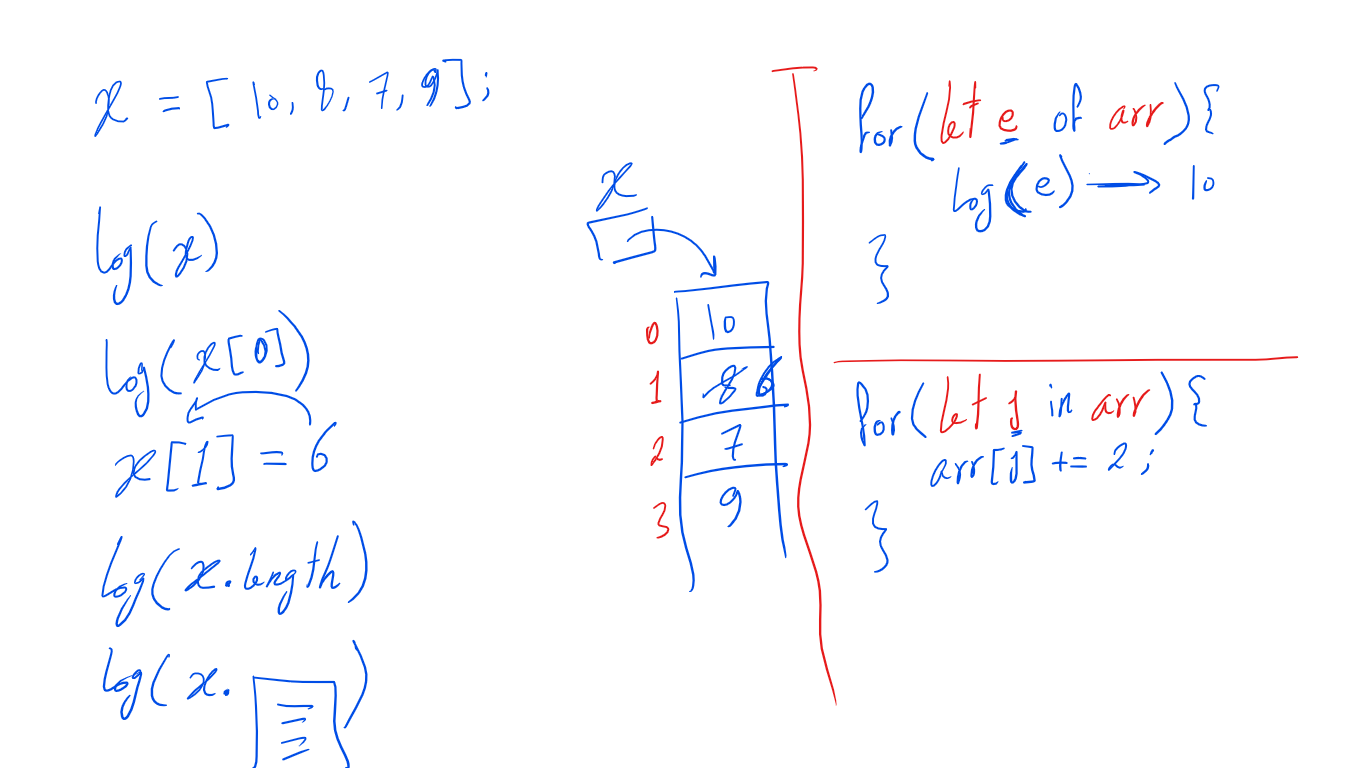 x = [10, 8, 7, 9];
log(x)
log(x[0])
x[1] = 6
log(x.length)
log(x. )
x
0 10
1 8 6
2 7
3 9
for(let e of arr){
log(e) → 10
}
for(let j in arr){
arr[j] += 2;
}